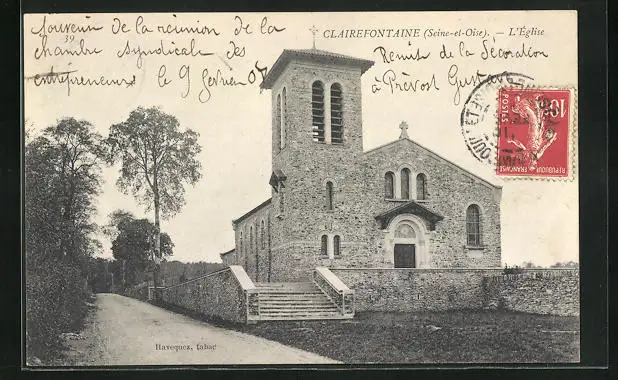 souvenir de la réunion de la
chambre syndicale des
entrepreneurs le 9 février 08
39
CLAIREFONTAINE (Seine-et-Oise). — L'Église
Remise de la Décoration
à Prévost Gustave
POSTES
10c
REPUBLIQUE FRANÇAISE
Havequez, tabac